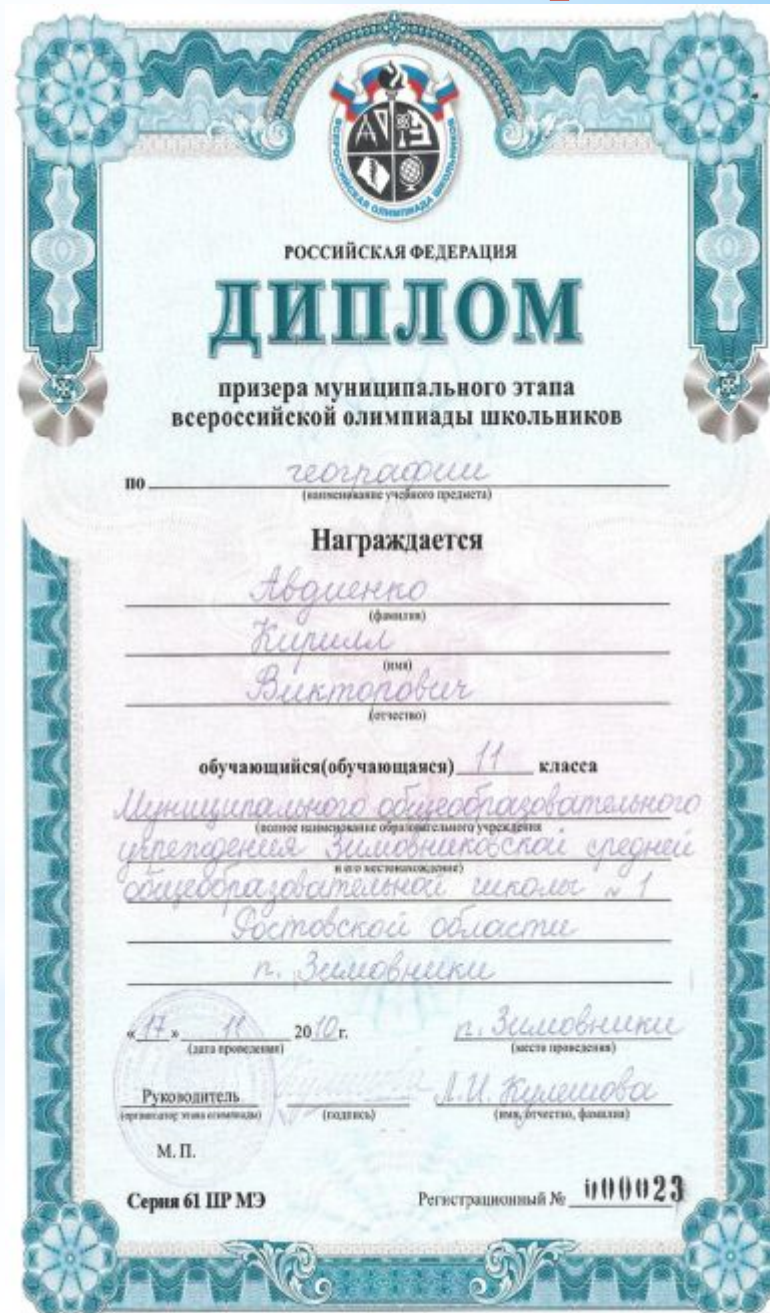 ВСЕРОССИЙСКАЯ ОЛИМПИАДА ШКОЛЬНИКОВ
РОССИЙСКАЯ ФЕДЕРАЦИЯ
ДИПЛОМ
призера муниципального этапа
всероссийской олимпиады школьников
по географии
(наименование учебного предмета)
Награждается
Авдиенко
(фамилия)
Кирилл
(имя)
Викторович
(отчество)
обучающийся(обучающаяся) 11 класса
Муниципального общеобразовательного
(полное наименование образовательного учреждения
учреждения Зимовниковской средней
и его местонахождение)
общеобразовательной школы №1
Ростовской области
п. Зимовники
«17» 11 2010 г. п. Зимовники
(дата проведения) (место проведения)
Руководитель Л.И. Кулешова
(организатор этапа олимпиады) (подпись) (имя, отчество, фамилия)
М. П.
Серия 61 ПР МЭ Регистрационный № 000023